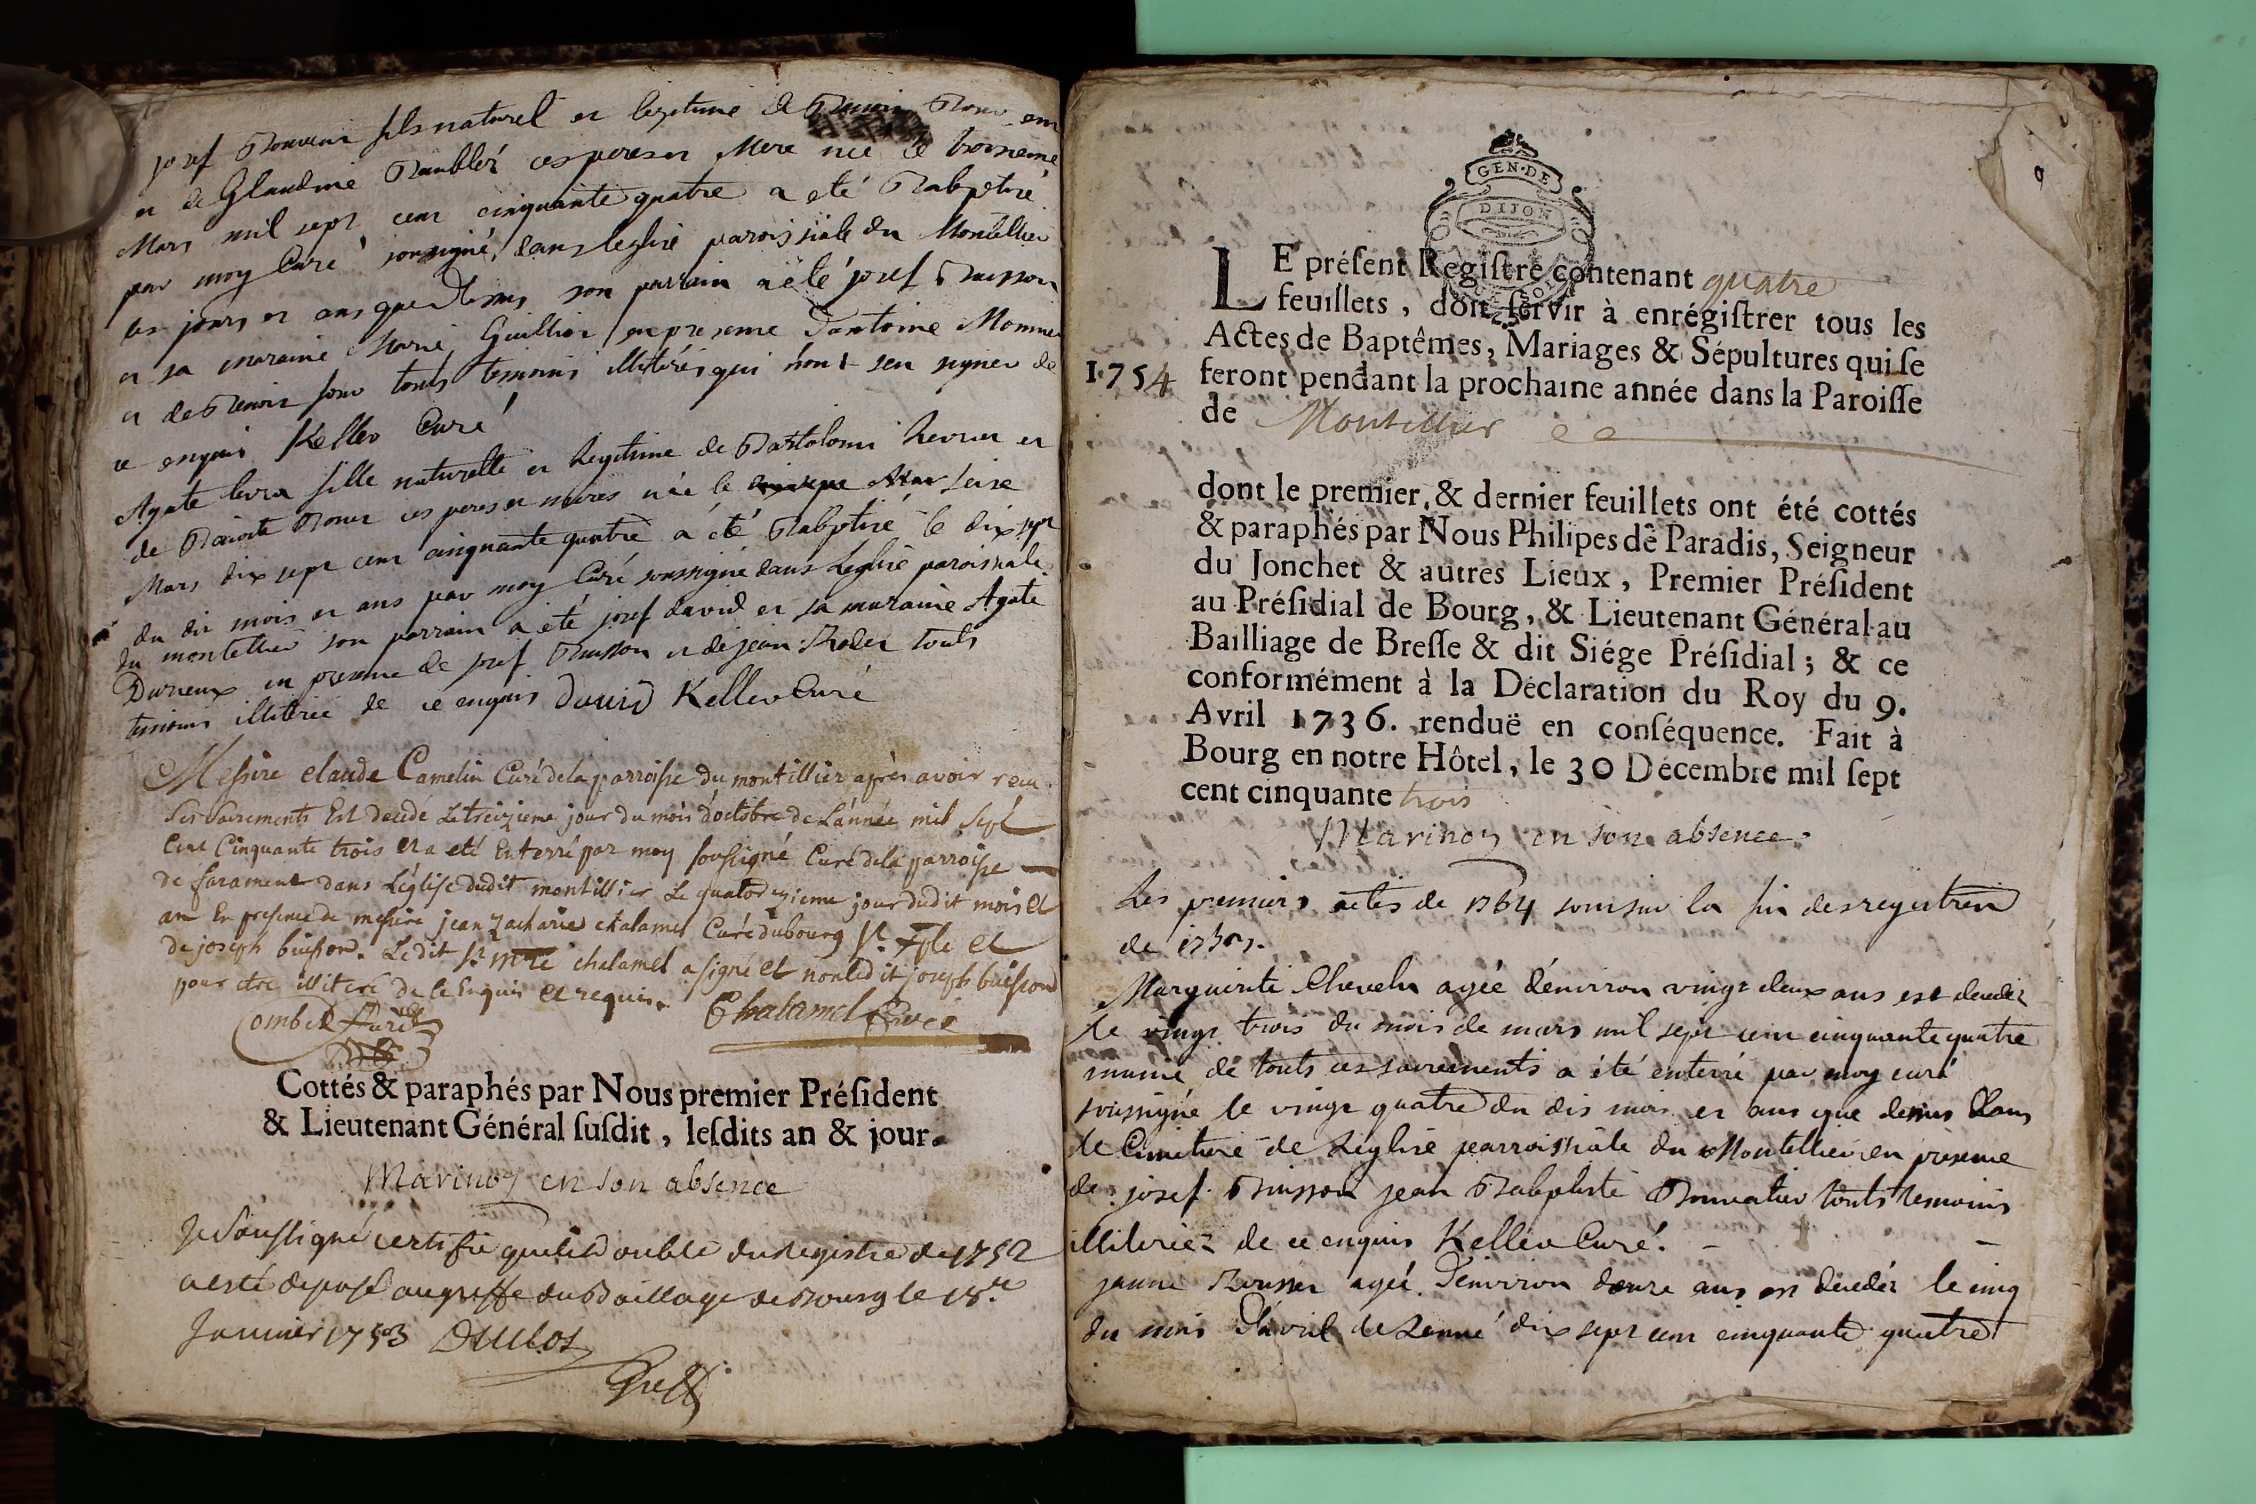 josef Bouveur fils naturel et legitime de Benoit
et de Glaudine ces peres et Mere née le troiseme
Mars mil sept cent cinquante quatre a eté Babptisé
par moy Curé soussigné dans leglise paroissiale du Montellier
les jours et ans que dessus son parrain a eté josef Buisson
et sa maraine Marie Guillion en presence d'antoine
et de Benoit touts temoins illiterés qui n'ont sceu signer de
ce enquis Keller Curé
Agate fille naturelle et legitime de Bartolomi et
de Benoite ces peres et meres née le seise
Mars dix sept cent cinquante quatre a été Babptisé le dix sept
du dit mois et ans par moy Curé soussigné dans Leglise paroissiale
du montellier son parrain a été josef david et sa maraine Agate
Durieux en presence de josef Buisson et de jean touts
temoins illiterée de ce enquis David Keller Curé
Messire claude Camelin Curé de la parroisse du montillier après avoir recu
ses sacrements Est decedé Le treizieme jour du mois d'octobre de L'année mil sept
Cent Cinquante trois et a eté Enterré par moy soussigné Curé de la parroisse
de faramens dans L'église dudit montillier Le quatorzieme jour dudit mois et
an En presence de messire jean Zacharie chalamel Curé du bourg St. et
de joseph buisson. Ledit Sr. chalamel a signé et non ledit joseph buisson
pour etre illiteré de ce Enquis et requis.
Combet Curé Chalamel Curé
Cottés & paraphés par Nous premier Préſident
& Lieutenant Général ſuſdit, leſdits an & jour.
Marinon en son absence
Je Soussigné certifie que le double du Registre de 1752
a esté deposé au greffe du Baillage de Bourg le 18e
Janvier 1753 Duclos
Greff
9
GEN. DE
DIJON
LE préſent Regiſtre contenant quatre
feuillets, doit ſervir à enrégiſtrer tous les
Actes de Baptêmes, Mariages & Sépultures qui ſe
1754 feront pendant la prochaine année dans la Paroiſſe
de Montellier
dont le premier, & dernier feuillets ont été cottés
& paraphés par Nous Philipes de Paradis, Seigneur
du Jonchet & autres Lieux, Premier Préſident
au Préſidial de Bourg, & Lieutenant Général au
Bailliage de Breſſe & dit Siége Préſidial; & ce
conformément à la Déclaration du Roy du 9.
Avril 1736. renduë en conſéquence. Fait à
Bourg en notre Hôtel, le 30 Décembre mil ſept
cent cinquante trois
Marinon en son absence
Les premiers actes de 1764 sont sur la fin des
de
Marguerite agée d'environ vingt deux ans est decedée
le vingt trois du mois de mars mil sept cent cinquante quatre
munie de touts ces sacrements a été enterré par moy curé
soussigné le vingt quatre du dis mois et ans que dessus dans
le Cimetiere de Leglise parroissiale du Montellier en presence
de josef Buisson jean Babptiste touts temoins
illiteriez de ce enquis Keller Curé.
jeanne agée d'environ douze ans est decedée le cinq
du mois d'avril de Lanné dix sept cent cinquante quatre